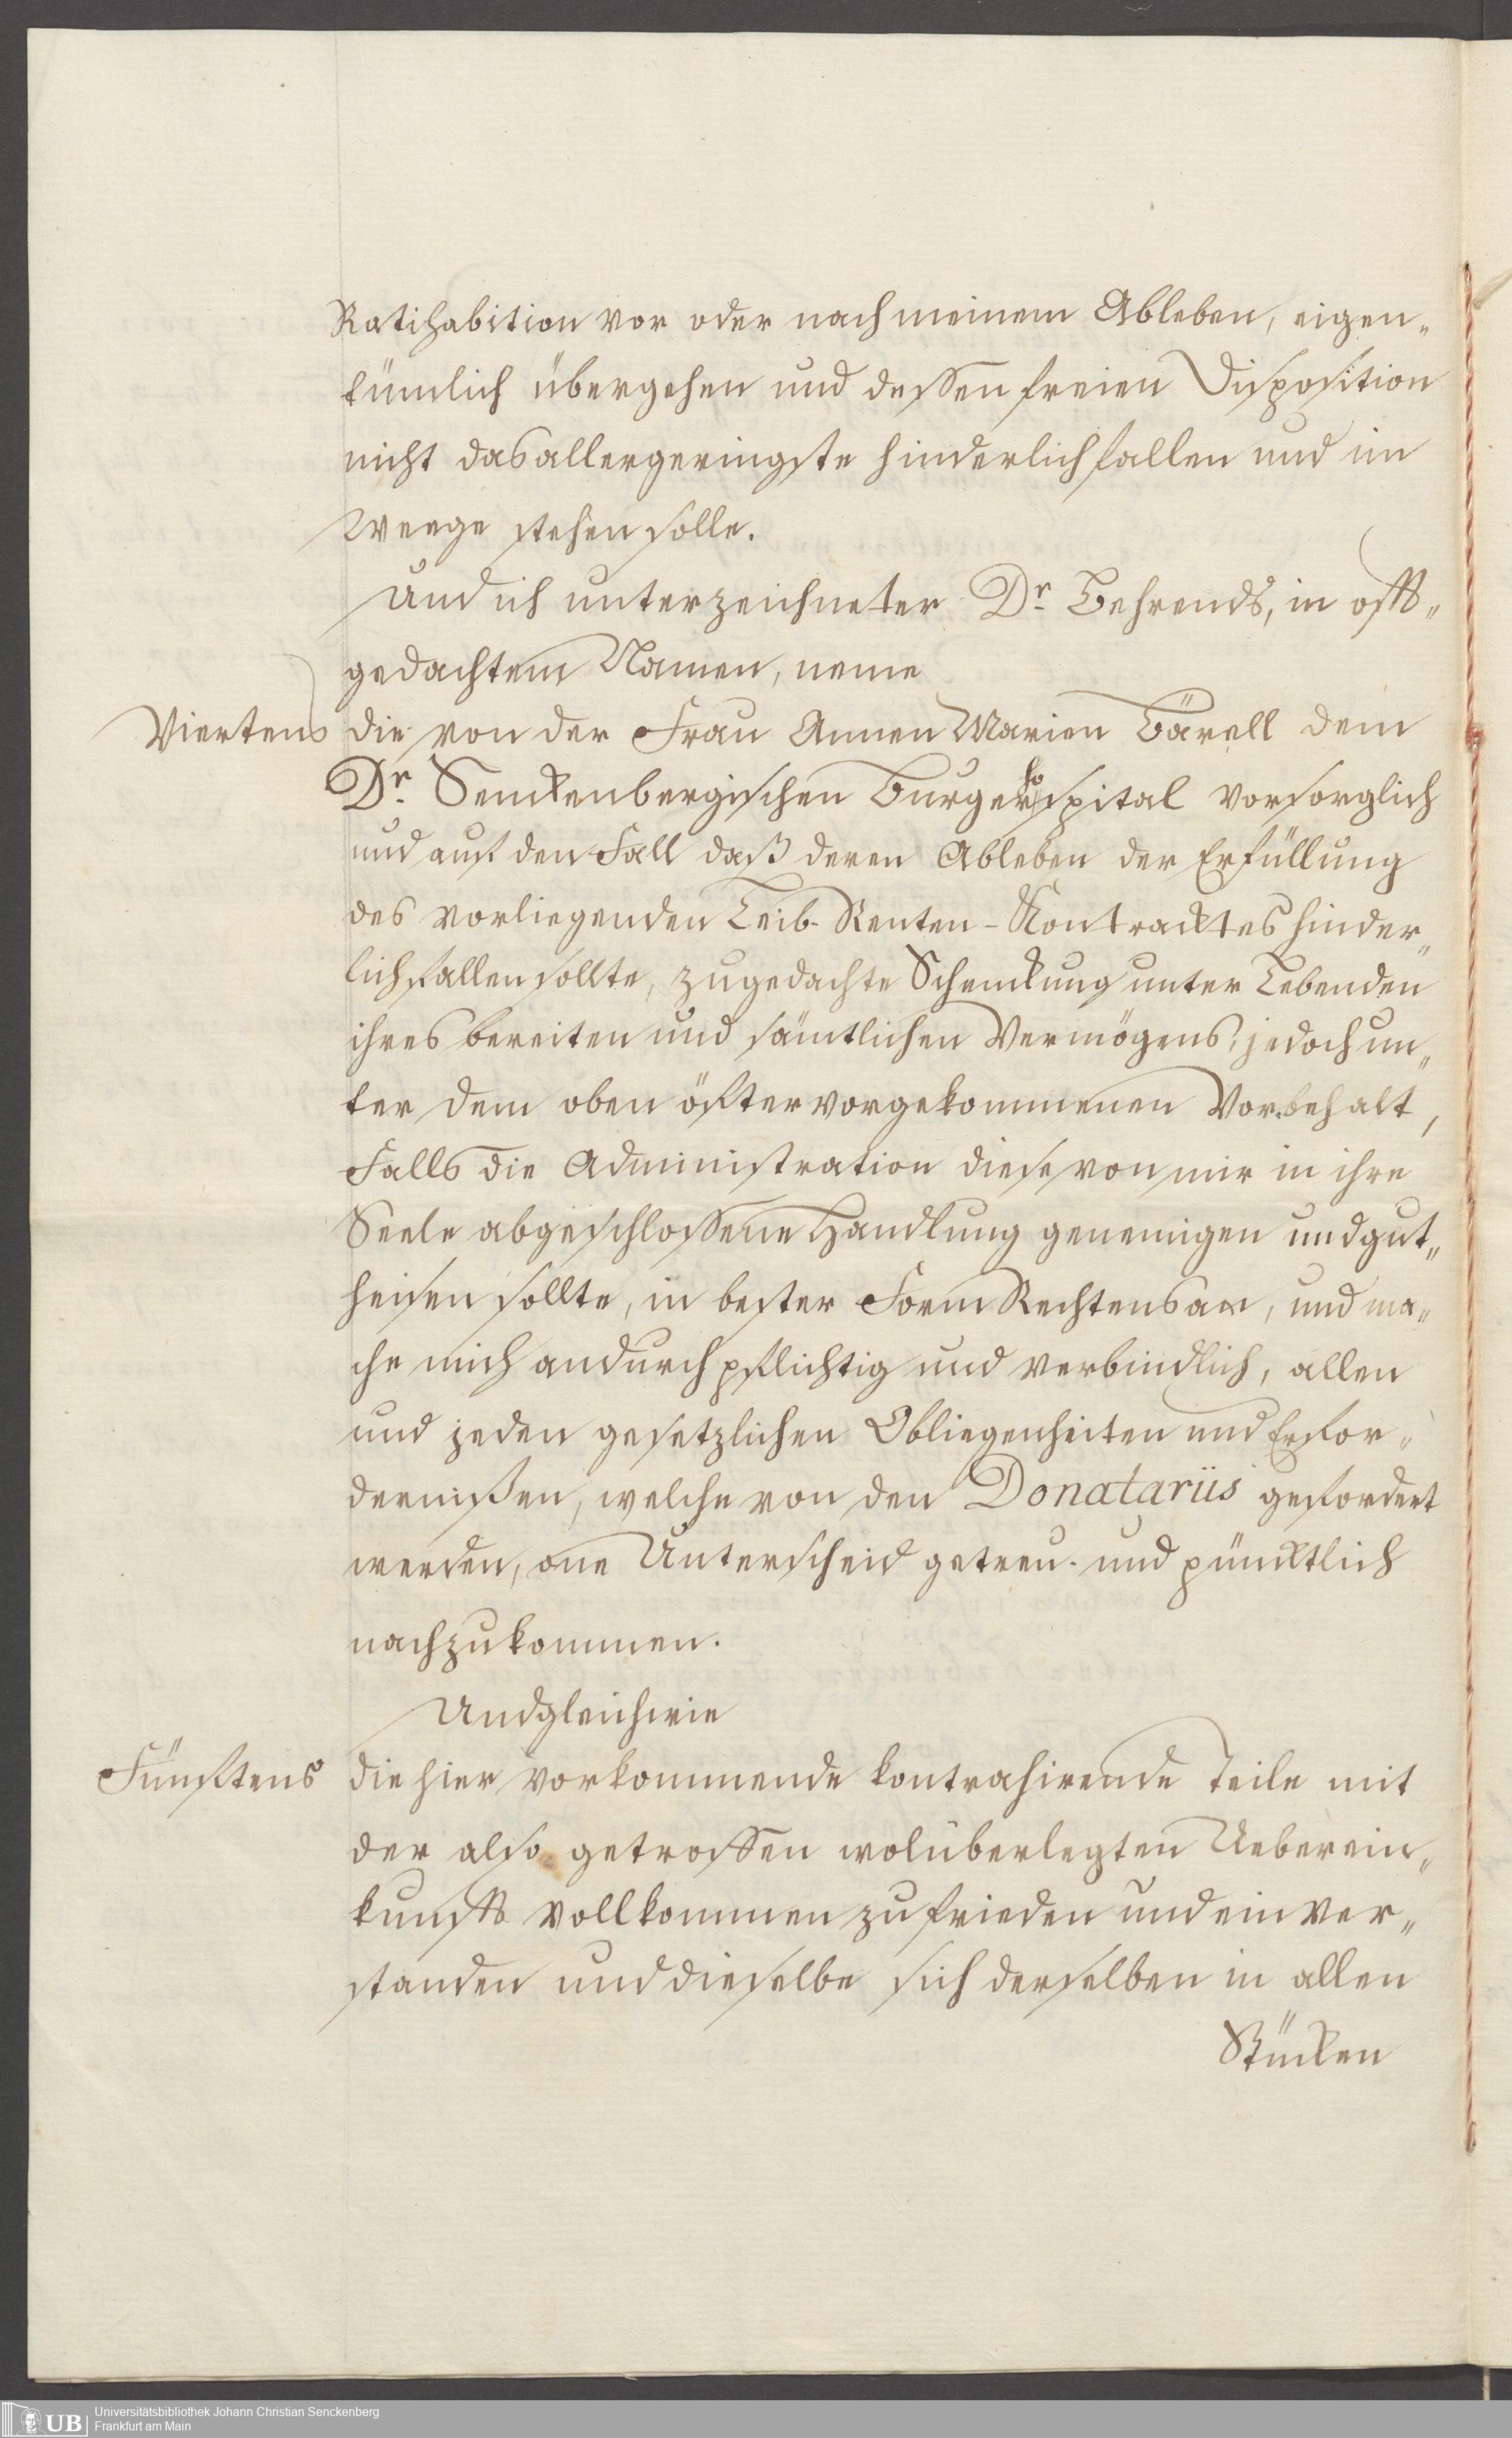 Ratihabition vor oder nach meinem Ableben, eigen„
tümlich übergehen und dessen freien Disposition
nicht das allergeringste hinderlich fallen und im
Weege stehen solle.
Und ich unterzeichneter Dr. Behrends, in offt„
gedachtem Namen, neme
Viertens die von der Frau Annen Marien Bärell dem
Dr. Senckenbergischen Burgerhospital vorsorglich
und auf den Fall daß deren Ableben der Erfüllung
des vorliegenden Leib-Renten-Kontracktes hinder„
lich fallen sollte, zugedachte Schenckung unter Lebenden
ihres bereiten und sämtlichen Vermögens, jedoch un„
ter dem oben öfter vorgekommenen Vorbehalt,
Falls die Administration diese von mir in ihre
Seele abgeschlossene Handlung genemigen und gut„
heisen sollte, in bester Form Rechtens an, und ma„
che mich andurch pflichtig und verbindlich, allen
und jeden gesetzlichen Obliegenheiten und Erfor„
dernißen, welche von den Donatariis gefordert
werden, one Unterscheid getreu- und pünktlich
nachzukommen.
Und gleichwie
Fünftens die hier vorkommende kontrahirende Teile mit
der also getroffen wolüberlegten Ueberein„
kunfft vollkommen zufrieden und einver„
standen und dieselbe sich derselben in allen
Stücken
UB Universitätsbibliothek Johann Christian Senckenberg
Frankfurt am Main